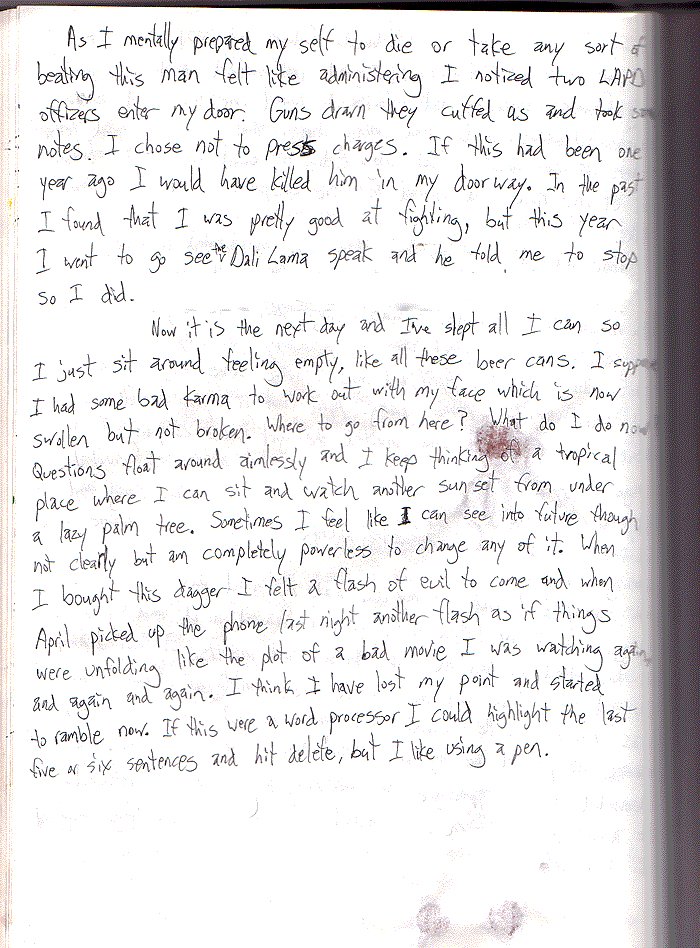 As I mentally prepared my self to die or take any sort of
beating this man felt like administering I notized two LAPD
offizers enter my door. Guns drawn they cuffed us and took
notes. I chose not to press charges. If this had been one
year ago I would have killed him in my doorway. In the past
I found that I was pretty good at fighting, but this year
I went to go see the Dali Lama speak and he told me to stop
so I did.
Now it is the next day and I've slept all I can so
I just sit around feeling empty, like all these beer cans. I
I had some bad Karma to work out with my face which is now
swollen but not broken. Where to go from here? What do I do now
Questions float around aimlessly and I keep thinking of a tropical
place where I can sit and watch another sun set from under
a lazy palm tree. Sometimes I feel like I can see into future though
not clearly but am completely powerless to change any of it. When
I bought this dagger I felt a flash of evil to come and when
April picked up the phone last night another flash as if things
were unfolding like the plot of a bad movie I was watching again
and again and again. I think I have lost my point and started
to ramble now. If this were a word processor I could highlight the last
five or six sentences and hit delete, but I like using a pen.